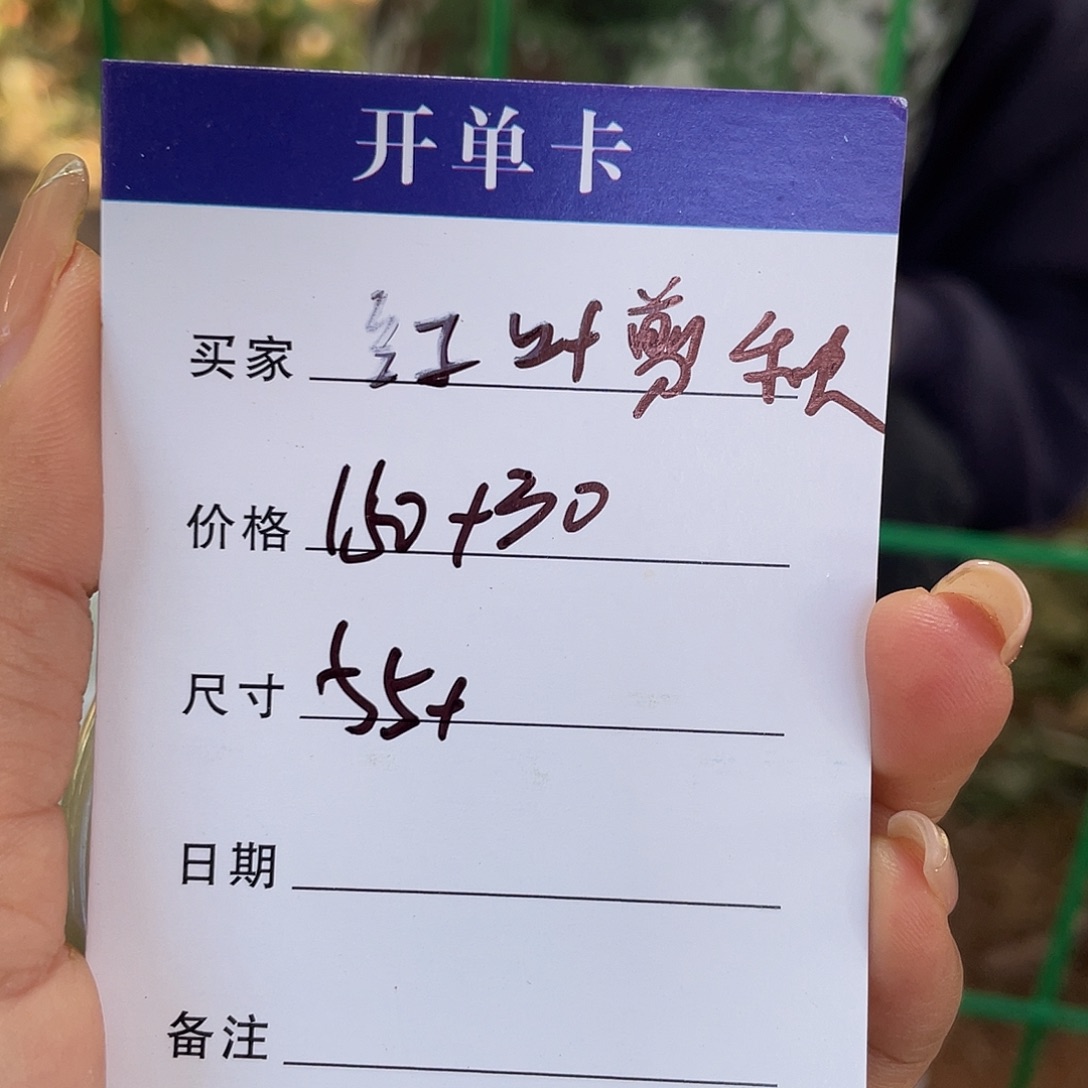 开单卡
买家 红叶剪秋
价格 150+30
尺寸 55+
日期
备注